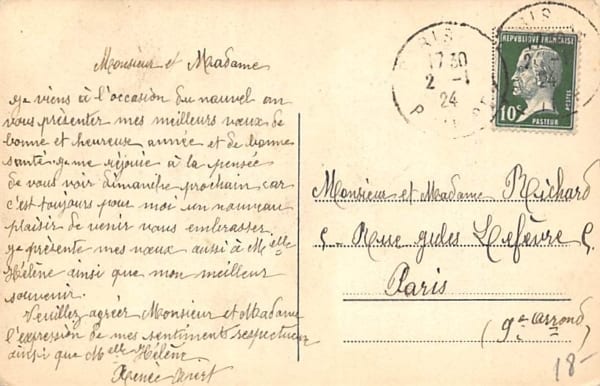 Monsieur et Madame
Je viens à l'occasion du nouvel an
vous présenter mes meilleurs vœux de
bonne et heureuse année et de bonne
santé. Je me réjouie à la pensée
de vous voir dimanche prochain car
c'est toujours pour moi un nouveau
plaisir de venir vous embrasser
Je présente mes vœux aussi à Melle
Hélène ainsi que mon meilleur
souvenir.
Veuillez agréer Monsieur et Madame
l'expression de mes sentiments respectueux
ainsi que Melle Hélène
Renée
PARIS
17 30
2 - 1
24
PARIS
24
REPUBLIQUE FRANÇAISE
POSTES
10c
PASTEUR
Monsieur et Madame Richard
5 - Rue Jules Lefèvre 5
Paris
(9e arrond)
18-